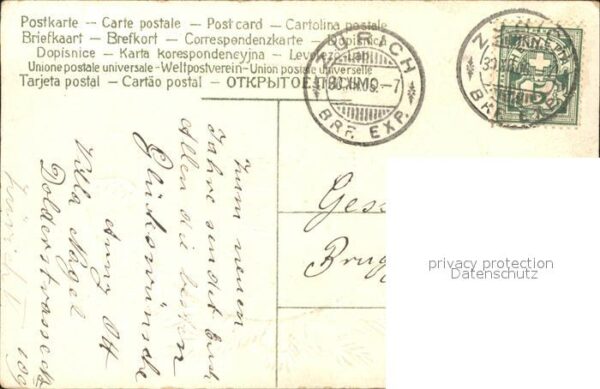 Postkarte - Carte postale - Post card - Cartolina postale
Briefkaart - Brefkort - Correspondenzkarte - Dopisnice
Dopisnice - Karta korespondencyjna - Levelező-Lap
Unione postale universale - Weltpostverein - Union postale universelle
Tarjeta postal - Cartão postal - ОТКРЫТОЕ ПИСЬМО
ZÜRICH
30.XII.
-7
BRF. EXP.
ZÜRICH
BRF. EXP.
5
Zum neuen
Jahre sendet Euch
Allen die besten
Glückwünsche
Anny Ott
Villa Nagel
Dolderstrasse
Zürich V
109
Ges
Brugg
privacy protection
Datenschutz